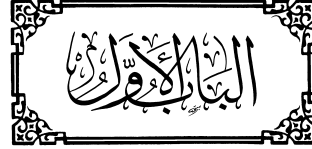 الباب الأوّل